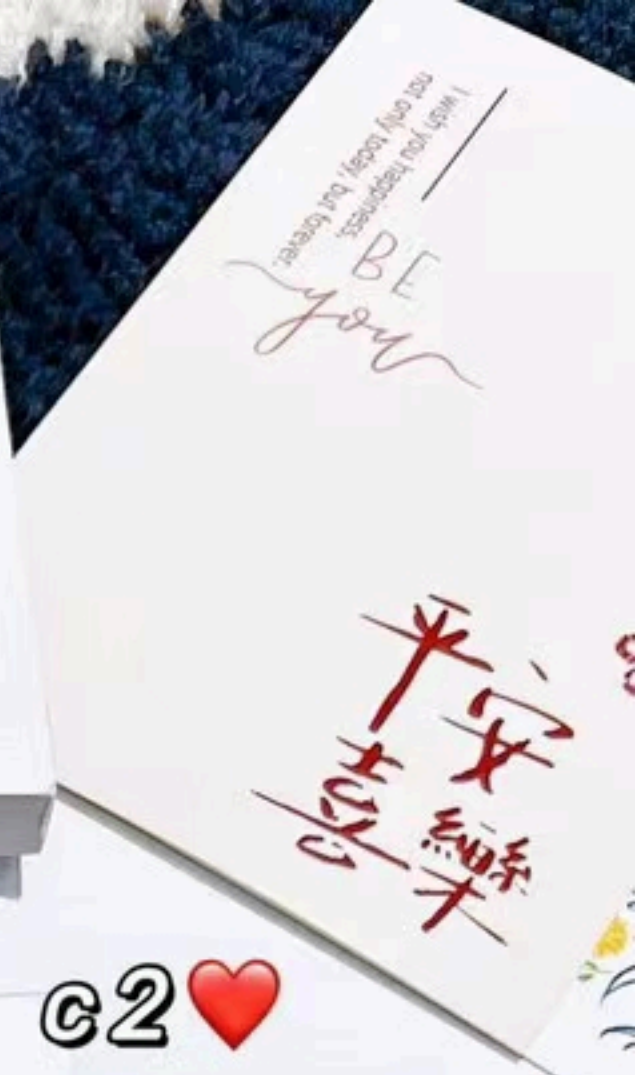 I wish you happiness,
not only today, but forever.
BE
you
平安
喜樂
c2❤️